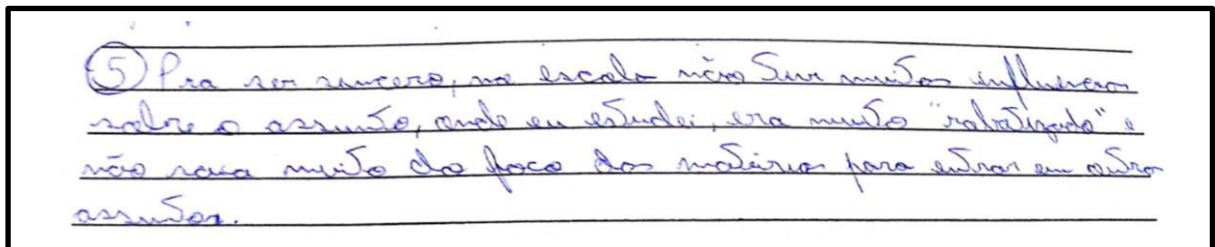 5 Pra ser sincero, na escola não tive muitas influencias
sobre o assunto, onde eu estudei, era muito "robotizado" e
não saia muito do foco das matérias para entrar em outro
assuntos.